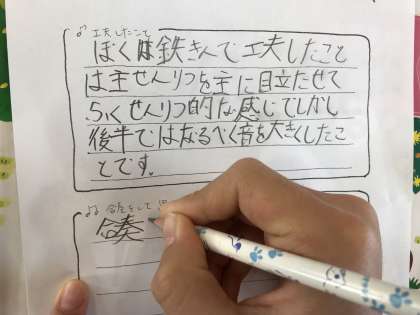 工夫したこと
ぼくは鉄きんで工夫したこと
は主せんりつを主に目立たせて
ふくせんりつ的な感じでしかし
後半ではなるべく音を大きくしたこ
とです。
合奏をして
合奏